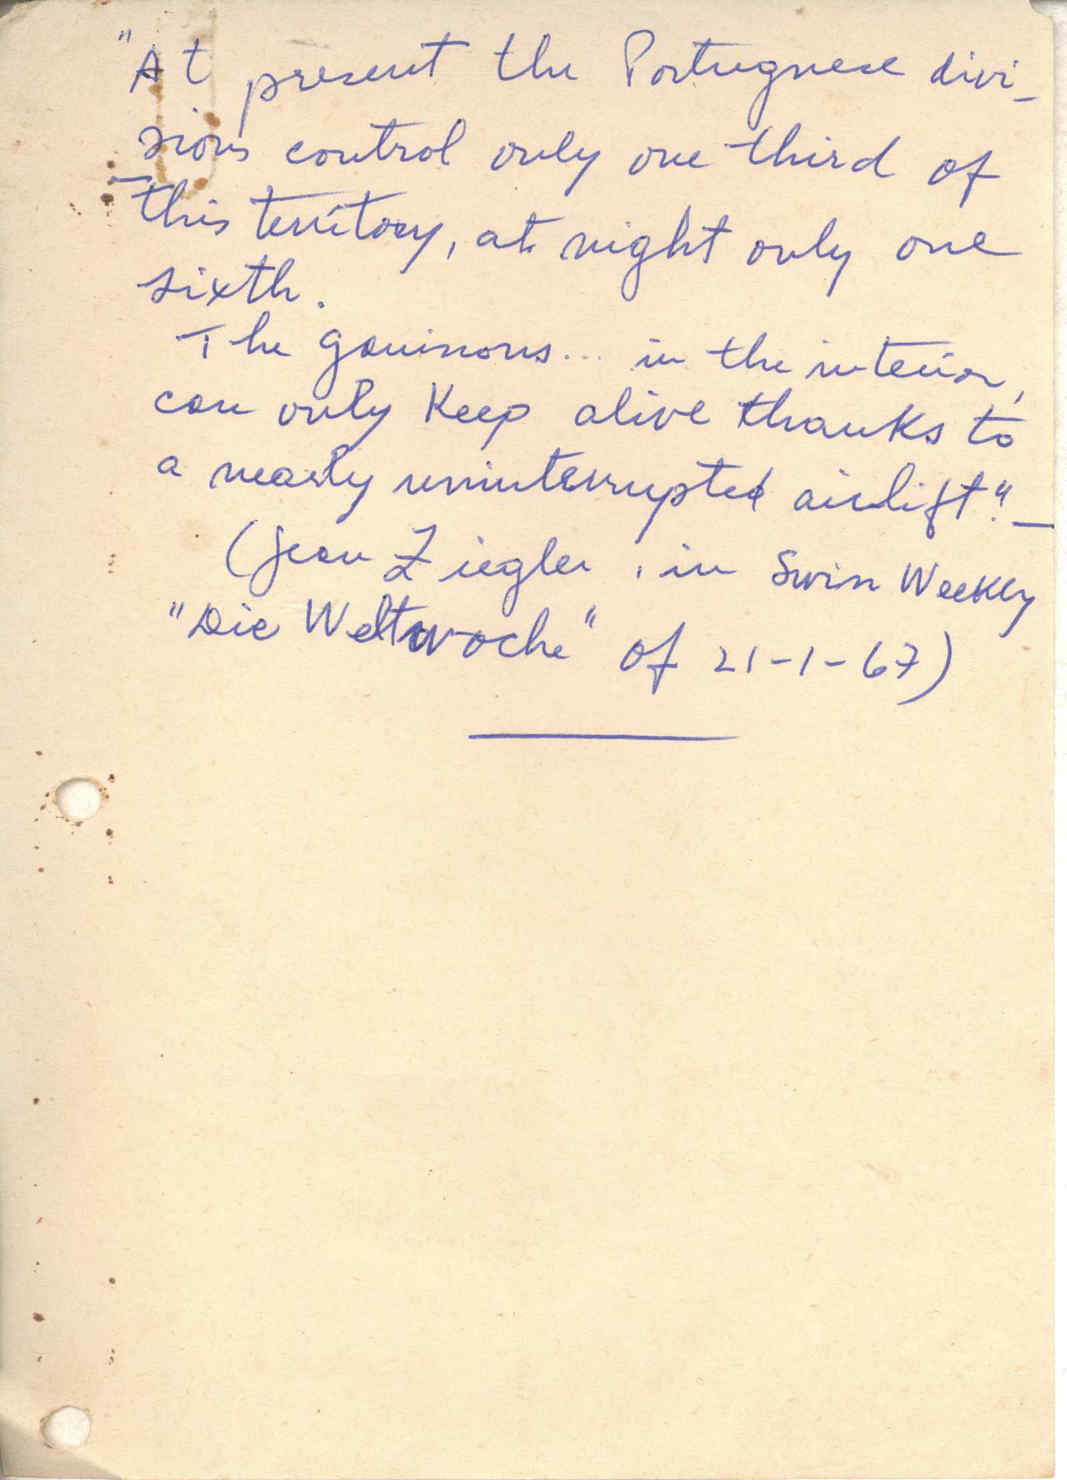 "At present the Portuguese divi-
sions control only one third of
this territory, at night only one
sixth.
The gouinons... in the interior,
can only keep alive thanks to
a nearly uninterrupted airlift." -
(Jean Ziegler, in Swiss Weekly
"Die Weltwoche" of 21-1-67)